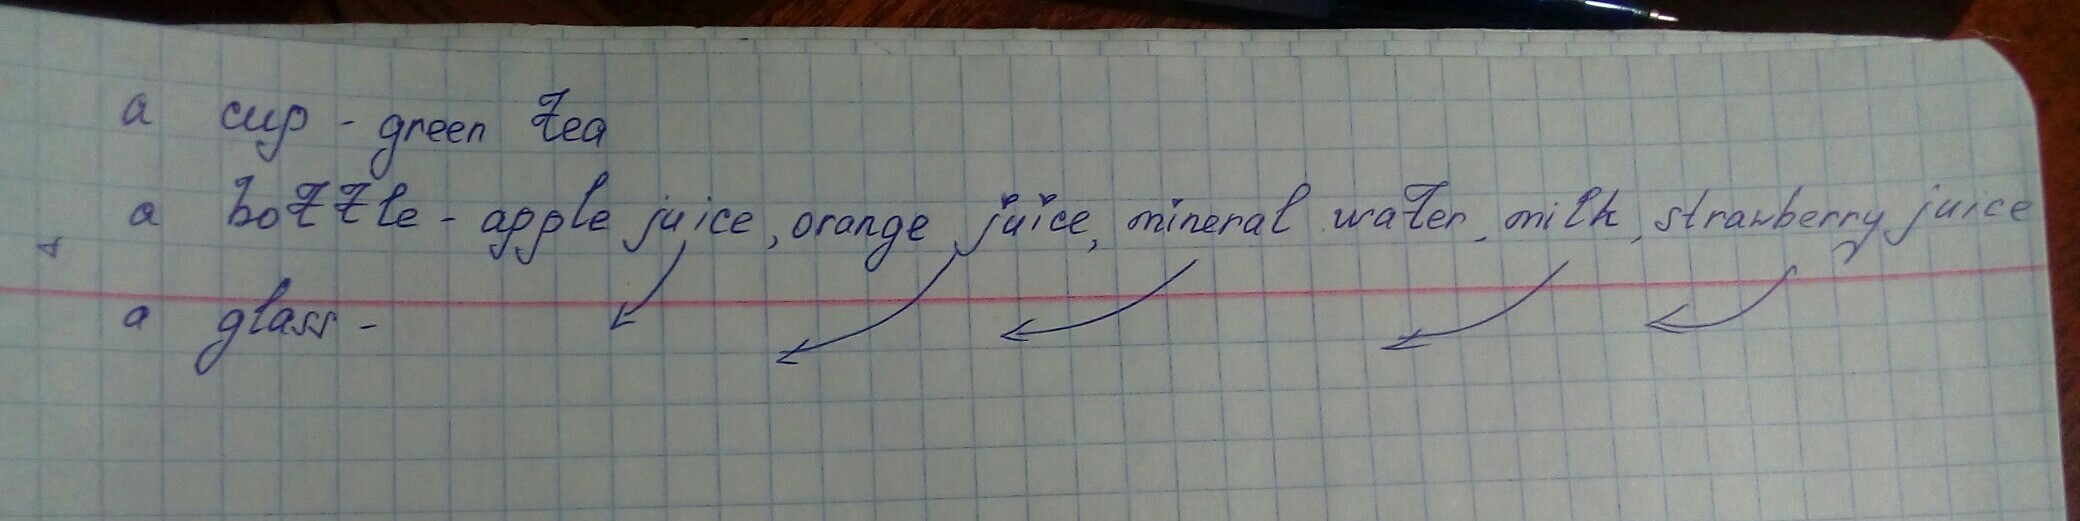 a cup - green tea
a bottle - apple juice, orange juice, mineral water, milk, strawberry juice
a glass -